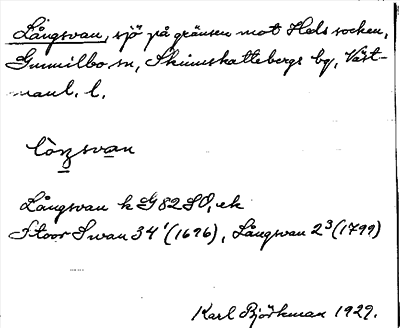 Långsvan, sjö på gränsen mot Heds socken,
Gunnilbo sn, Skinnskattebergs bg, Väst-
manl. l.
lòŋsvan
Långsvan k G 82 SO, ek
Stoor Swan 34¹ (1696), Långsvan 2³ (1799)
Karl Björkman 1929.